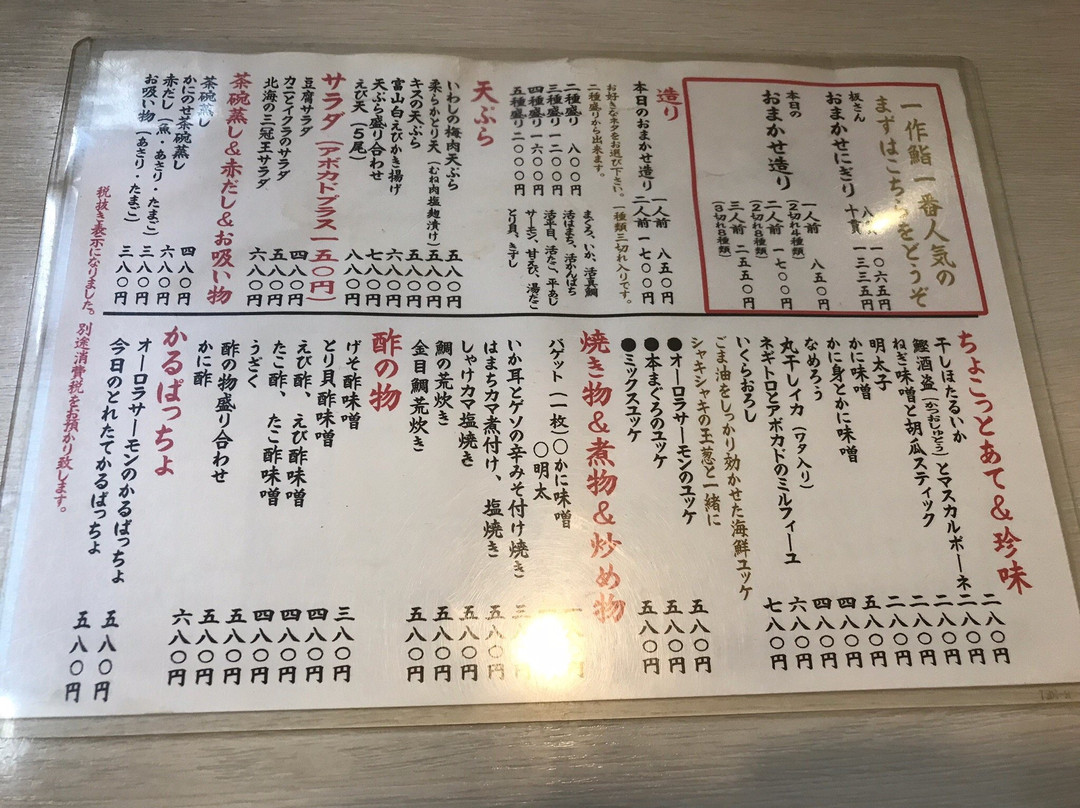 一作鮨一番人気の
まずはこちらをどうぞ
板さん
おまかせにぎり
八貫 一〇六五円
十貫 一三三五円
本日の
おまかせ造り
一人前 八五〇円
(2切れ4種類)
二人前 一七〇〇円
(2切れ8種類)
三人前 二五五〇円
(3切れ8種類)
造り
本日のおまかせ造り 一人前 八五〇円
二人前 一七〇〇円
お好きなネタをお選び下さい。一種類三切れ入りです。
二種盛りから出来ます。
二種盛り 八〇〇円
三種盛り 一二〇〇円
四種盛り 一六〇〇円
五種盛り 二〇〇〇円
まぐろ、いか、活真鯛
活はまち、活かんぱち
活平目、活たこ、平あじ
サーモン、甘えび、湯たこ
とり貝、きずし
天ぷら
いわしの梅肉天ぷら 五八〇円
柔らかとり天(むね肉塩麹漬け) 五八〇円
キスの天ぷら 五八〇円
富山白えびかき揚げ 六八〇円
天ぷら盛り合わせ 七八〇円
えび天(5尾) 八八〇円
サラダ(アボカドプラス一五〇円)
豆腐サラダ 四八〇円
カニとイクラのサラダ 五八〇円
北海の三冠王サラダ 六八〇円
茶碗蒸し&赤だし&お吸い物
茶碗蒸し 四八〇円
かにのせ茶碗蒸し 六八〇円
赤だし(魚・あさり・たまご) 三八〇円
お吸い物(あさり・たまご) 三八〇円
税抜き表示になりました。別途消費税をお預かり致します。
ちょこっとあて&珍味
干しほたるいか 二八〇円
鰹酒盗(かつおしゅとう)とマスカルポーネ 二八〇円
ねぎ味噌と胡瓜スティック 二八〇円
明太子 二八〇円
かに味噌 二八〇円
かに身とかに味噌 五八〇円
なめろう 四八〇円
丸干しイカ(ワタ入り) 四八〇円
ネギトロとアボカドのミルフィーユ 六八〇円
いくらおろし 七八〇円
ごま油をしっかり効かせた海鮮ユッケ
シャキシャキの玉葱と一緒に
●オーロラサーモンのユッケ 五八〇円
●本まぐろのユッケ 五八〇円
●ミックスユッケ 五八〇円
焼き物&煮物&炒め物
バゲット(一枚)〇かに味噌
〇明太
いか耳とゲソの辛みそ付け焼き
はまちカマ煮付け、塩焼き 五八〇円
しゃけカマ塩焼き 五八〇円
鯛の荒炊き 五八〇円
金目鯛荒炊き 五八〇円
酢の物
げそ酢味噌 三八〇円
とり貝酢味噌 四八〇円
えび酢、えび酢味噌 四八〇円
たこ酢、たこ酢味噌 四八〇円
うざく 五八〇円
酢の物盛り合わせ 五八〇円
かに酢 六八〇円
かるぱっちょ
オーロラサーモンのかるぱっちょ 五八〇円
今日のとれたてかるぱっちょ 五八〇円